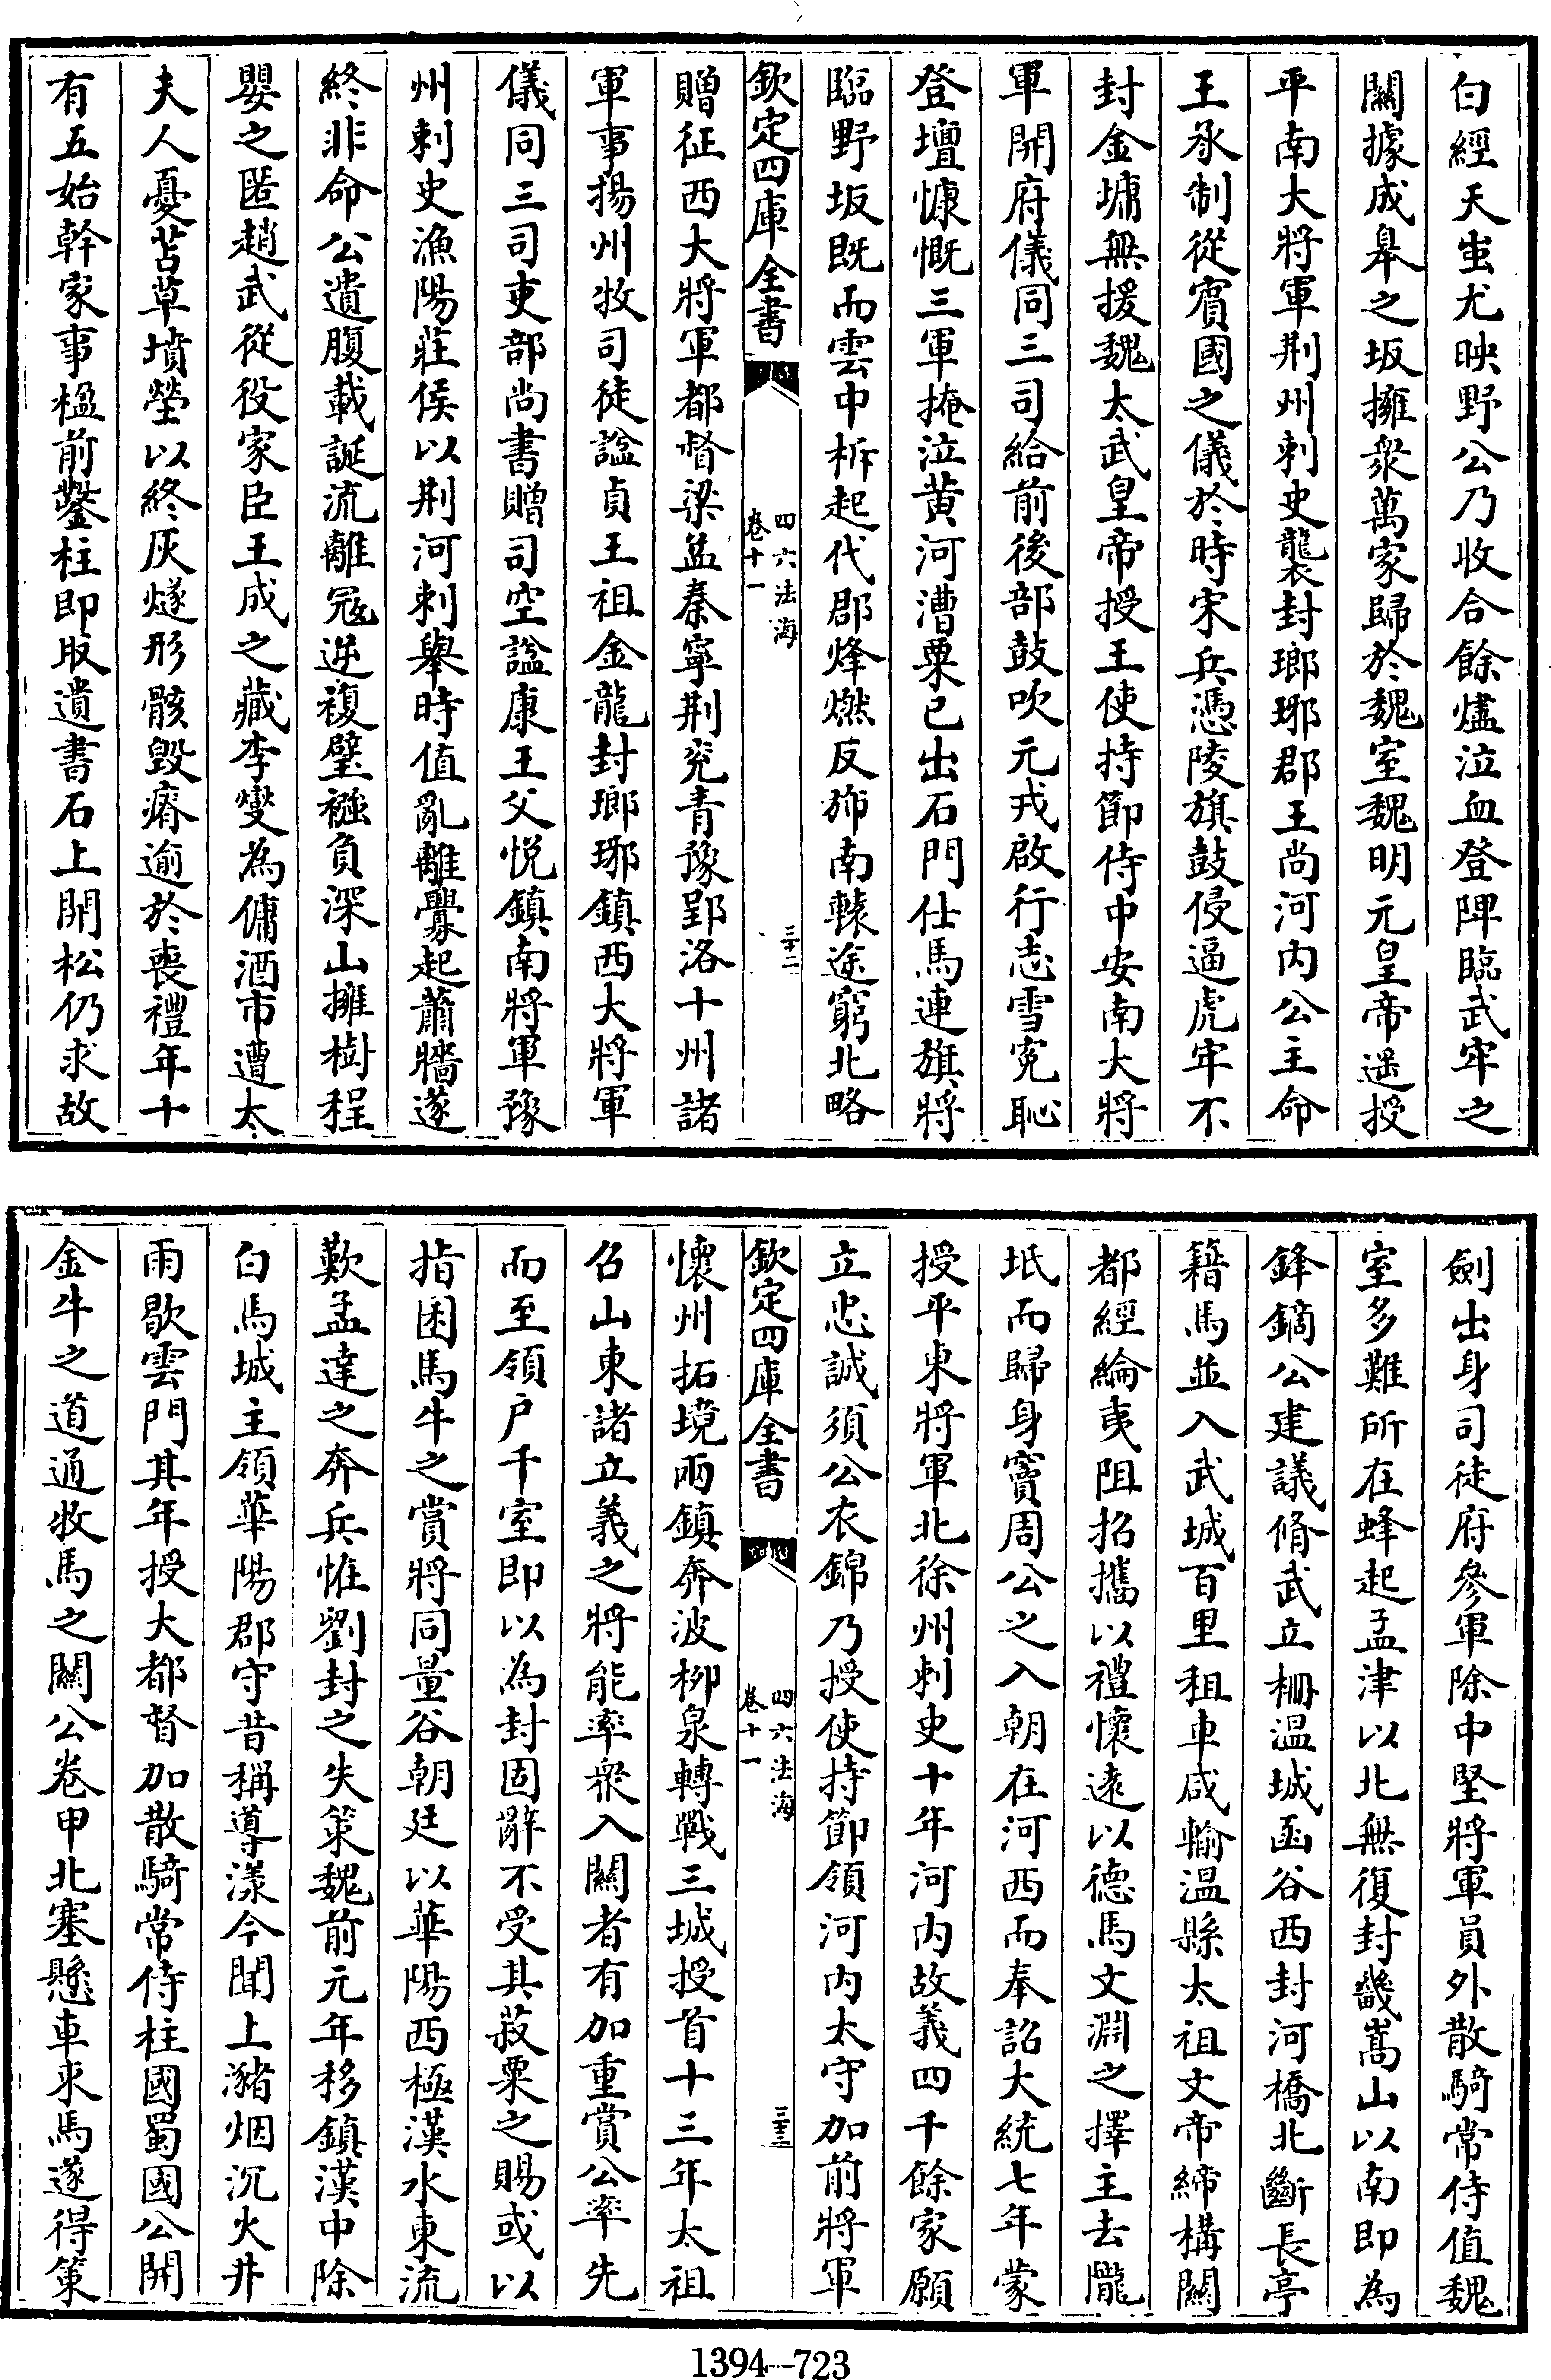 白經天蚩尤映野公乃收合餘燼泣血登陴臨武牢之
關據成皋之坂擁衆萬家歸於魏室魏明元皇帝遥授
平南大將軍荆州刺史襲封瑯琊郡王尚河内公主命
王承制從賓國之儀於時宋兵憑陵旗鼓侵逼虎牢不
封金墉無援魏太武皇帝授王使持節侍中安南大將
軍開府儀同三司給前後部鼓吹元戎啟行志雪寃恥
登壇慷慨三軍掩泣黄河漕粟已出石門仕馬連旗將
臨野坂既而雲中柝起代郡烽燃反斾南轅途窮北略
欽定四庫全書
四六法海
卷十一
三十二
贈征西大將軍都督梁益秦寧荆兖青豫郢洛十州諸
軍事揚州牧司徒諡貞王祖金龍封瑯琊鎮西大將軍
儀同三司吏部尚書贈司空諡康王父悦鎮南將軍豫
州刺史漁陽莊侯以荆河刺舉時值亂離釁起蕭牆遂
終非命公遺腹載誕流離冦逆複壁襁負深山擁樹程
嬰之匿趙武從役家臣王成之藏李燮為傭酒市遭太
夫人憂苫草墳塋以終灰燧形骸毁瘠逾於喪禮年十
有五始幹家事楹前鑿柱即取遺書石上開松仍求故
劍出身司徒府參軍除中堅將軍員外散騎常侍值魏
室多難所在蜂起孟津以北無復封畿嵩山以南即為
鋒鏑公建議脩武立柵温城函谷西封河橋北斷長亭
籍馬並入武城百里租車咸輸温縣太祖文帝締構關
都經綸夷阻招攜以禮懷遠以德馬文淵之擇主去隴
坻而歸身竇周公之入朝在河西而奉詔大統七年蒙
授平東將軍北徐州刺史十年河内故義四千餘家願
立忠誠須公衣錦乃授使持節領河内太守加前將軍
欽定四庫全書
四六法海
卷十一
三十三
懷州拓境兩鎮奔波栁泉轉戰三城授首十三年太祖
召山東諸立義之將能率衆入關者有加重賞公率先
而至領户千室即以為封固辭不受其菽粟之賜或以
指囷馬牛之賞將同量谷朝廷以華陽西極漢水東流
歎孟達之奔兵惟劉封之失策魏前元年移鎮漢中除
白馬城主領華陽郡守昔稱導漾今聞上瀦烟沉火井
雨歇雲門其年授大都督加散騎常侍柱國蜀國公開
金牛之道通牧馬之關公卷甲北塞懸車釆馬遂得策
1394—723